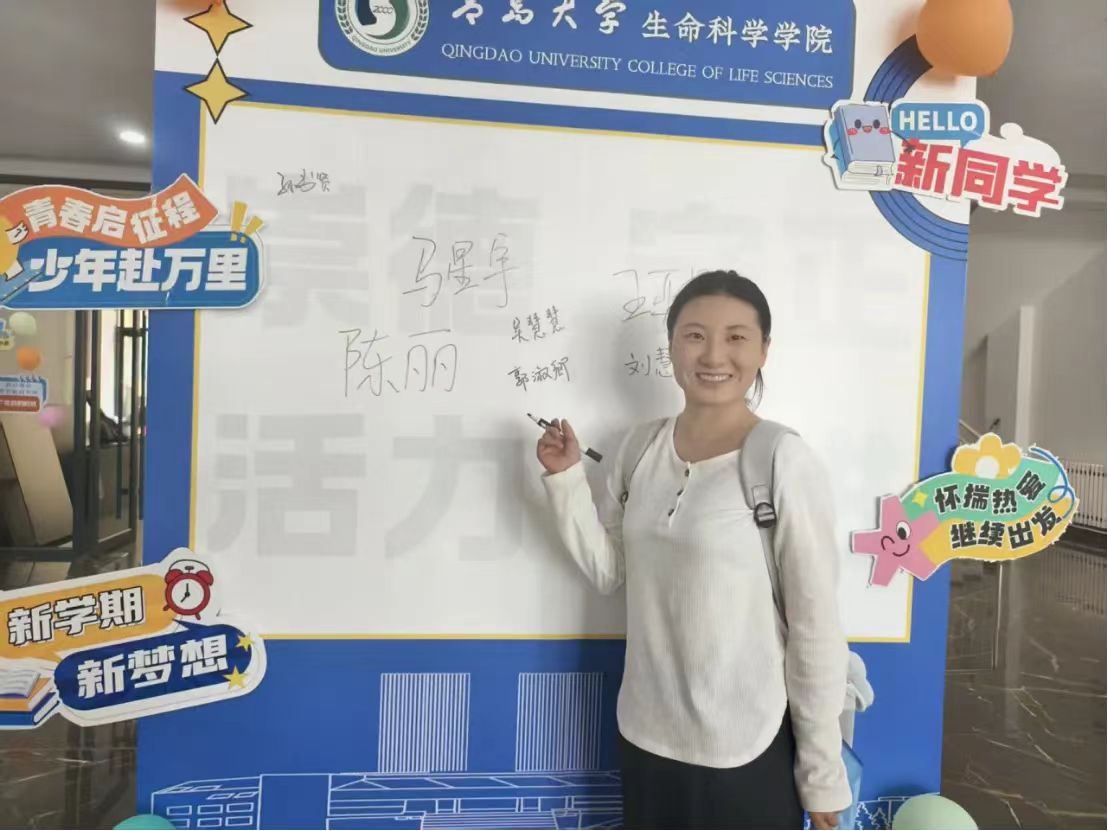 青岛大学 生命科学学院
QINGDAO UNIVERSITY COLLEGE OF LIFE SCIENCES
2000
QINGDAO UNIVERSITY
HELLO
新同学
青春启征程
少年赴万里
崇德
马星宇
陈丽
吴慧慧
郭淑卿
刘慧
活力
怀揣热爱
继续出发
新学期
新梦想